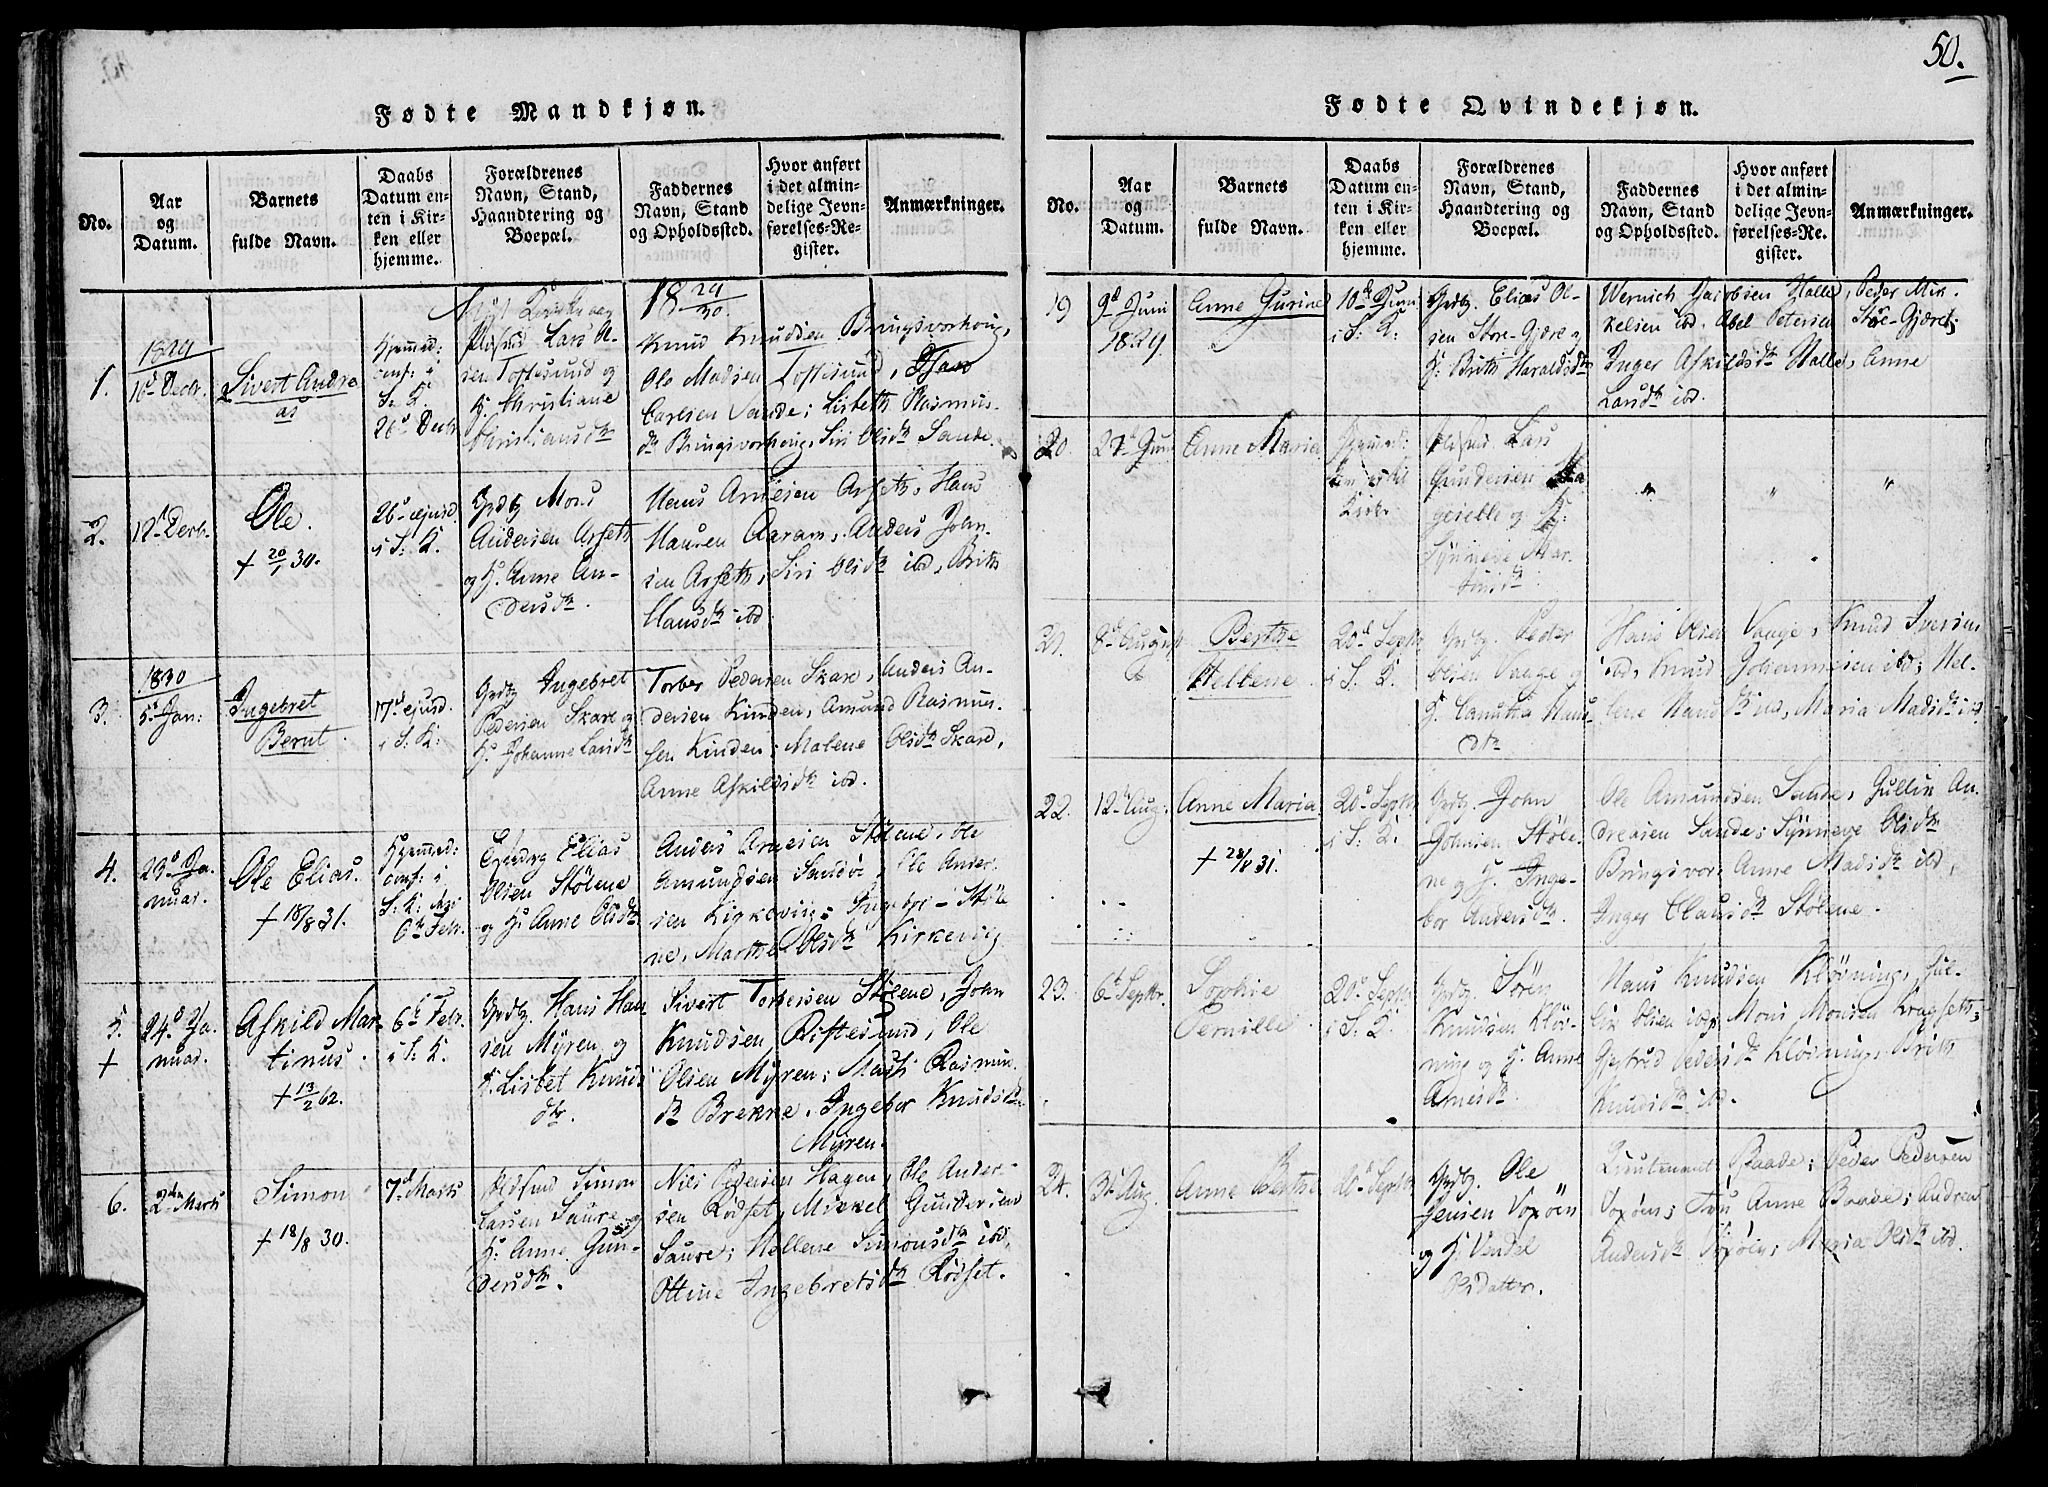 50.
Fødte Mandkjøn.
No.
Aar og Datum.
Barnets fulde Navn.
Daabs Datum enten i Kirken eller hjemme.
Forældrenes Navn, Stand, Haandtering og Boepæl.
Faddernes Navn, Stand og Opholdssted.
Hvor anført i det almindelige Jevnførelses-Register.
Anmærkninger.
18 29/30
1.
1829
16d Decbr.
Sivert Andreas
Hjemmed:
conf: i
S: K.
26d Decbr
Lars Olsen
Toftesund og
H. Christiane
Christiansdtr
Knud Knudsen Bringsvorhoug,
Ole Madsen Toftesund,
Carlsen Sande; Lisbeth Rasmusdtr
Bringsvorhoug, Siri Olsdtr Sande.
2.
12d Decb.
Ole.
+ 20/1 30.
26d ejusd.
i S: K.
Grdbr Mons
Andersen Arseth
og H. Anne Andersdtr.
Hans Arnesen Arseth, Hans
Hansen Aaram, Anders Johnsen
Arseth, Siri Olsdtr ibd, Brith
Hansdtr ibd
3.
1830
5d Jan:
Ingebret
Bernt.
17d ejusd.
i S: K:
Grdbr Ingebret
Pedersen Skare og
H. Johanne Larsdtr
Torber Pedersen Skare, Anders Andersen
Kinden, Amund Rasmussen
Kinden, Malene Olsdtr Skare,
Anne Askildsdtr ibd.
4.
23d Januar.
Ole Elias.
+ 18/8 31.
Hjemmed:
conf: i
S: K:
6te Febr.
Elias
Olsen Stølene
og H. Anne Olsdtr
Anders Arnesen Stølene, Ole
Amundsen Sandøe, Ole Andersen
Kirkevig; Ingebor Stølene,
Marthe Olsdtr Kirkevig
5.
+
24d Januar.
Askild Martinus.
+ 13/2 62.
6te Febr.
i S: K.
Grdbr. Hans Hansen
Myren, og
H. Lisbet Knudsdtr.
Sivert Torbersen Stølene, John
Knudsen Riftesund, Ole
Olsen Myren; Mari Rasmusdtr
Brekke, Ingebor Knudsdtr
Myren.
6.
2den Marts
Simon
+ 18/8 30.
7d Marts
Simon
Larsen Saure og
H: Anne Gundersdtr.
Niels Pedersen Hagen, Ole Andersen
Rødset, Mikkel Gundersen
Saure; Hellene Simonsdtr ibd,
Oline Ingebretsdtr Rødset.
Fødte Qvindekjøn.
No.
Aar og Datum.
Barnets fulde Navn.
Daabs Datum enten i Kirken eller hjemme.
Forældrenes Navn, Stand, Haandtering og Boepæl.
Faddernes Navn, Stand og Opholdssted.
Hvor anført i det almindelige Jevnførelses-Register.
Anmærkninger.
19
9d Juni
1829.
Anne Gurine
10d Juni
i S: K:
Grdbr. Elias Olsen
Store-Gjære og
H. Brith Haraldsdtr
Wernich Jacobsen Halle, Peder Mikkelsen
ibd. Abel Petersen Store-Gjæret;
Inger Askildsdtr Halle, Anne
Larsdtr ibd
20.
27d Juni
Anne Maria
Lars
Gundersen
og H:
Synneve
"
"
"
21.
8d August
Berthe
Hellene.
20d Septbr
i S: K.
Grdbr. Peder
Olsen Vaage og
H. Canutha Hansdtr
Hans Olsen Vaage, Knud Iversen
ibd, Knud Johannesen ibd; Hellene
ibd, Maria Madsdtr ibd.
22.
12d Aug:
Anne Maria
+ 28/8 31.
20d Septbr
i S: K.
Grdbr. John
Johnsen Stølene
og H. Ingebor
Andersdtr.
Ole Amundsen Sande, Gullik Andreasen
Sande; Synneve Olsdtr
Bringsvor, Anne Madsdtr ibd,
Inger Clausdtr Stølene.
23.
6te Septbr.
Sophie
Pernille.
20d Septbr
i S: K.
Grdbr. Søren
Knudsen Kløvning
og H. Anne
Arnesdtr.
Hans Knudsen Kløvning,
Olsen ibd, Mons Monsen Kragseth;
Gjertrud Pedersdtr Kløvning, Brith
Knudsdtr ibd.
24.
31d Aug.
Anne Berthe
20d Septbr
Grdbr. Ole
Jensen Voxøen
og H. Vendel
Lieutenant Baade; Peder Pedersen
Voxøen; Fru Anne Baade; Andrea
Andersdtr Voxøen; Maria Olsdtr ibd.